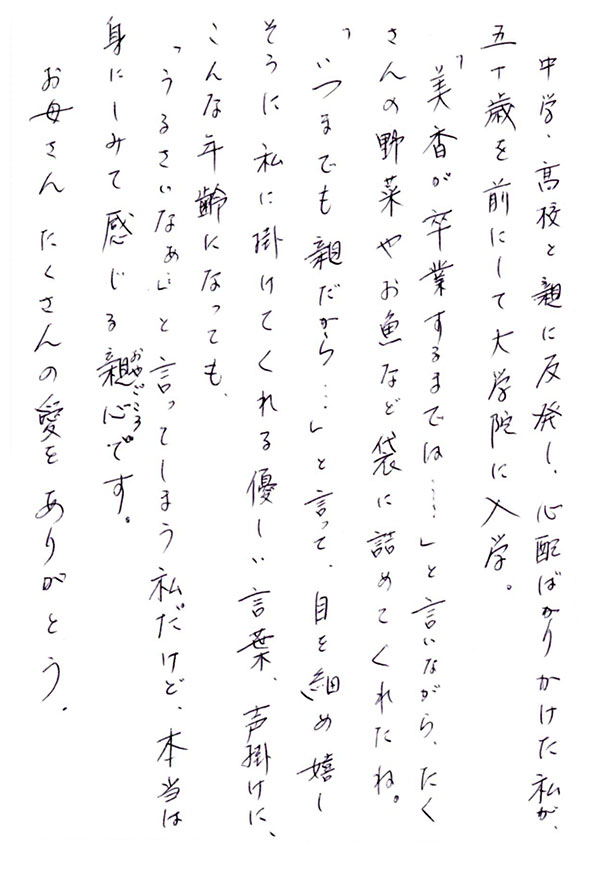 中学、高校と親に反発し、心配ばかりかけた私が、
五十歳を前にして大学院に入学。
「美香が卒業するまでは……」と言いながら、たく
さんの野菜やお魚など袋に詰めてくれたね。
「いつまでも親だから…」と言って、目を細め嬉し
そうに私に掛けてくれる優しい言葉、声掛けに、
こんな年齢になっても、
「うるさいなぁ…」と言ってしまう私だけど、本当は
身にしみて感じる親心おやごころです。
お母さん たくさんの愛をありがとう。